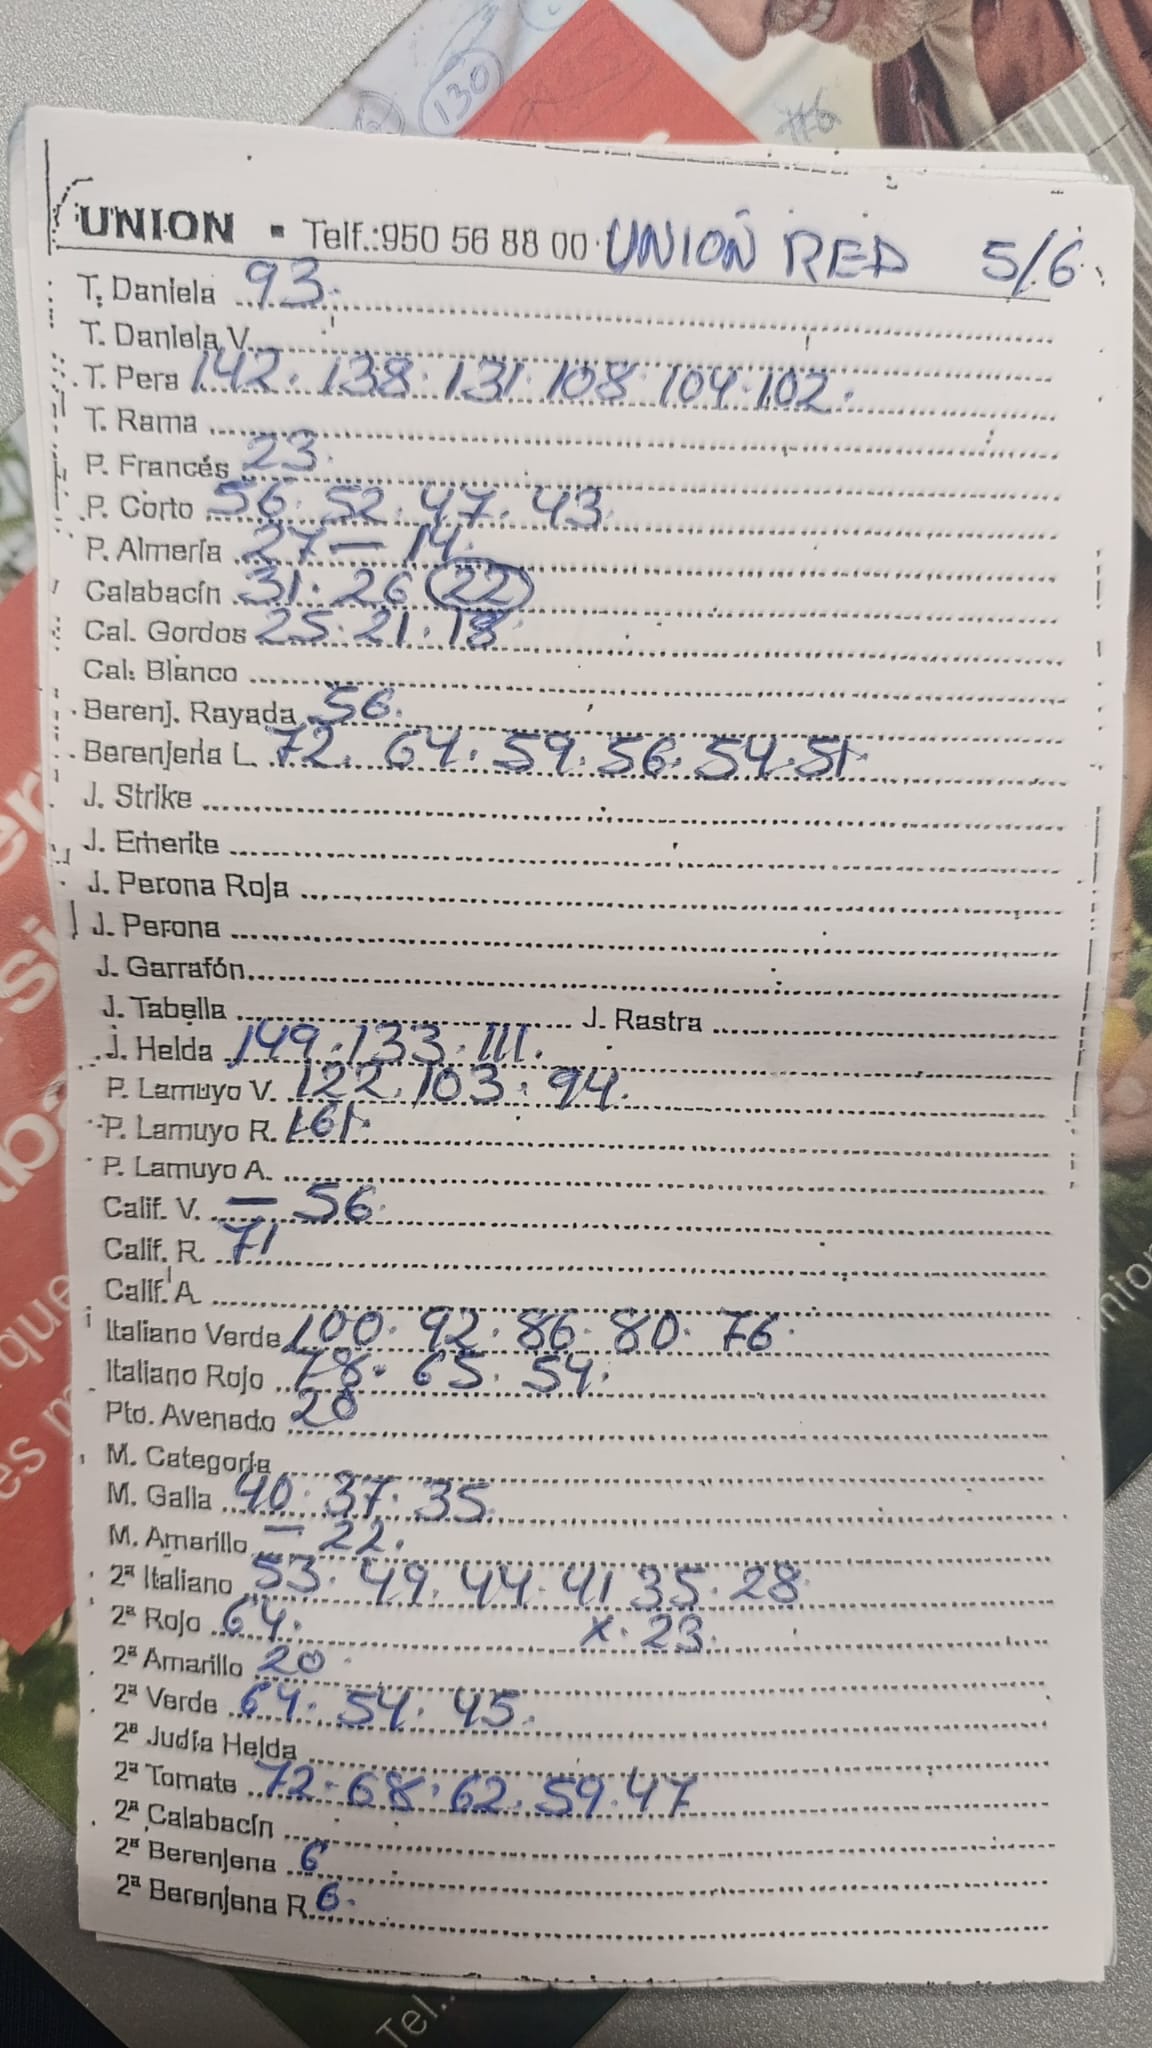 130
#6
UNION ▪ Telf.:950 56 88 00 UNIÓN RED 5/6
T. Daniela 93.
T. Daniela V.
T. Pera 142. 138. 131. 108. 104. 102.
T. Rama
P. Francés 23.
P. Corto 56. 52. 47. 43.
P. Almería 27 — 14.
Calabacín 31. 26 (22)
Cal. Gordos 25. 21. 18
Cal. Blanco
Berenj. Rayada 56.
Berenjena L. 72. 64. 59. 56. 54. 51.
J. Strike
J. Emerite
J. Perona Roja
J. Perona
J. Garrafón
J. Tabella J. Rastra
J. Helda 149. 133. 111.
P. Lamuyo V. 122. 103. 94.
P. Lamuyo R. 161.
P. Lamuyo A.
Calif. V. — 56.
Calif. R. 71
Calif. A.
Italiano Verde 100. 92. 86. 80. 76.
Italiano Rojo 78. 65. 54.
Pto. Avenado 20
M. Categoría
M. Galia 40. 37. 35.
M. Amarillo — 22.
2ª Italiano 53. 49. 44. 41 35. 28.
2ª Rojo 64. x. 23.
2ª Amarillo 20.
2ª Verde 64. 54. 45.
2ª Judía Helda
2ª Tomate 72. 68. 62. 59. 47
2ª Calabacín
2ª Berenjena 6
2ª Berenjena R. 6.
Tel.